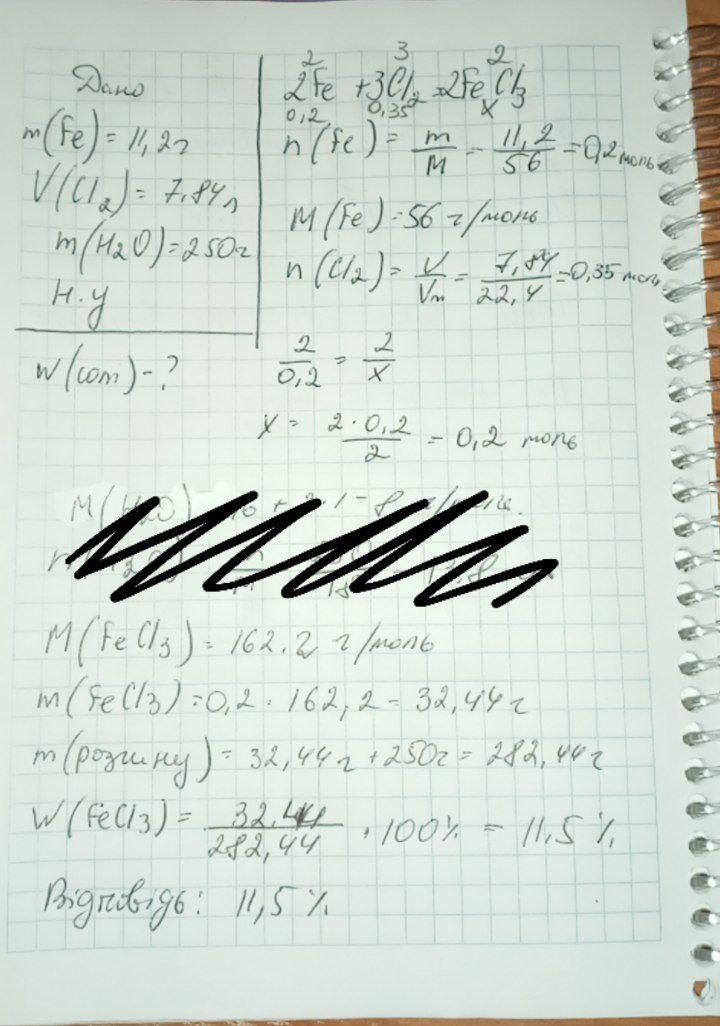 Дано
m(Fe) = 11,2г
V(Cl2) = 7,84л
m(H2O) = 250г
Н.у
W(сол) - ?
2 3 2
2Fe + 3Cl2 = 2FeCl3
0,2 0,35 x
n(Fe) = m/M = 11,2/56 = 0,2 моль
M(Fe) = 56 г/моль
n(Cl2) = V/Vm = 7,84/22,4 = 0,35 моль
2/0,2 = 2/x
x = 2·0,2/2 = 0,2 моль
M(FeCl3) = 162.2 г/моль
m(FeCl3) = 0,2 · 162,2 = 32,44г
m(розчину) = 32,44г + 250г = 282,44г
W(FeCl3) = 32,44/282,44 · 100% = 11,5%
Відповідь: 11,5%